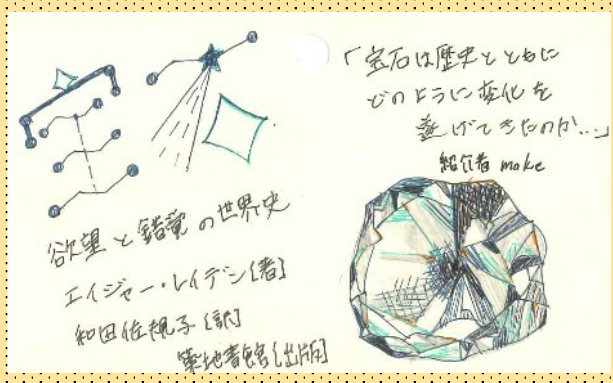 「宝石は歴史とともに
どのように変化を
遂げてきたのか…」
紹介者 make
欲望と錯覚の世界史
エイジャー・レイデン[著]
和田佐規子[訳]
築地書館[出版]